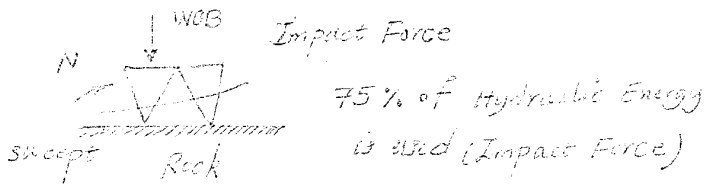 WOB
Impact Force
N
75% of Hydraulic Energy
is used (Impact Force)
swept
Rock